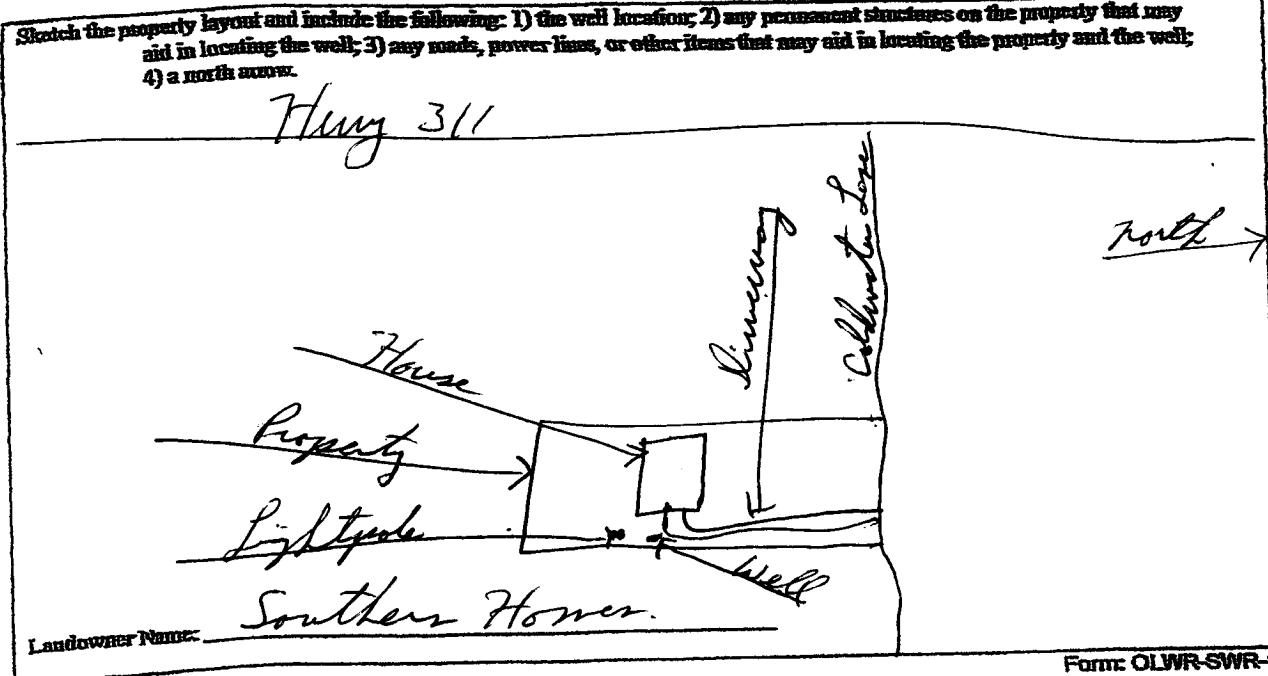 Sketch the property layout and include the following: 1) the well location; 2) any permanent structures on the property that may
aid in locating the well; 3) any roads, power lines, or other items that may aid in locating the property and the well;
4) a north arrow.
Hwy 311
north
Driveway
Coldwater
House
Property
Lightpole
Well
Southern Homes.
Landowner Name:
Form: OLWR-SWR-